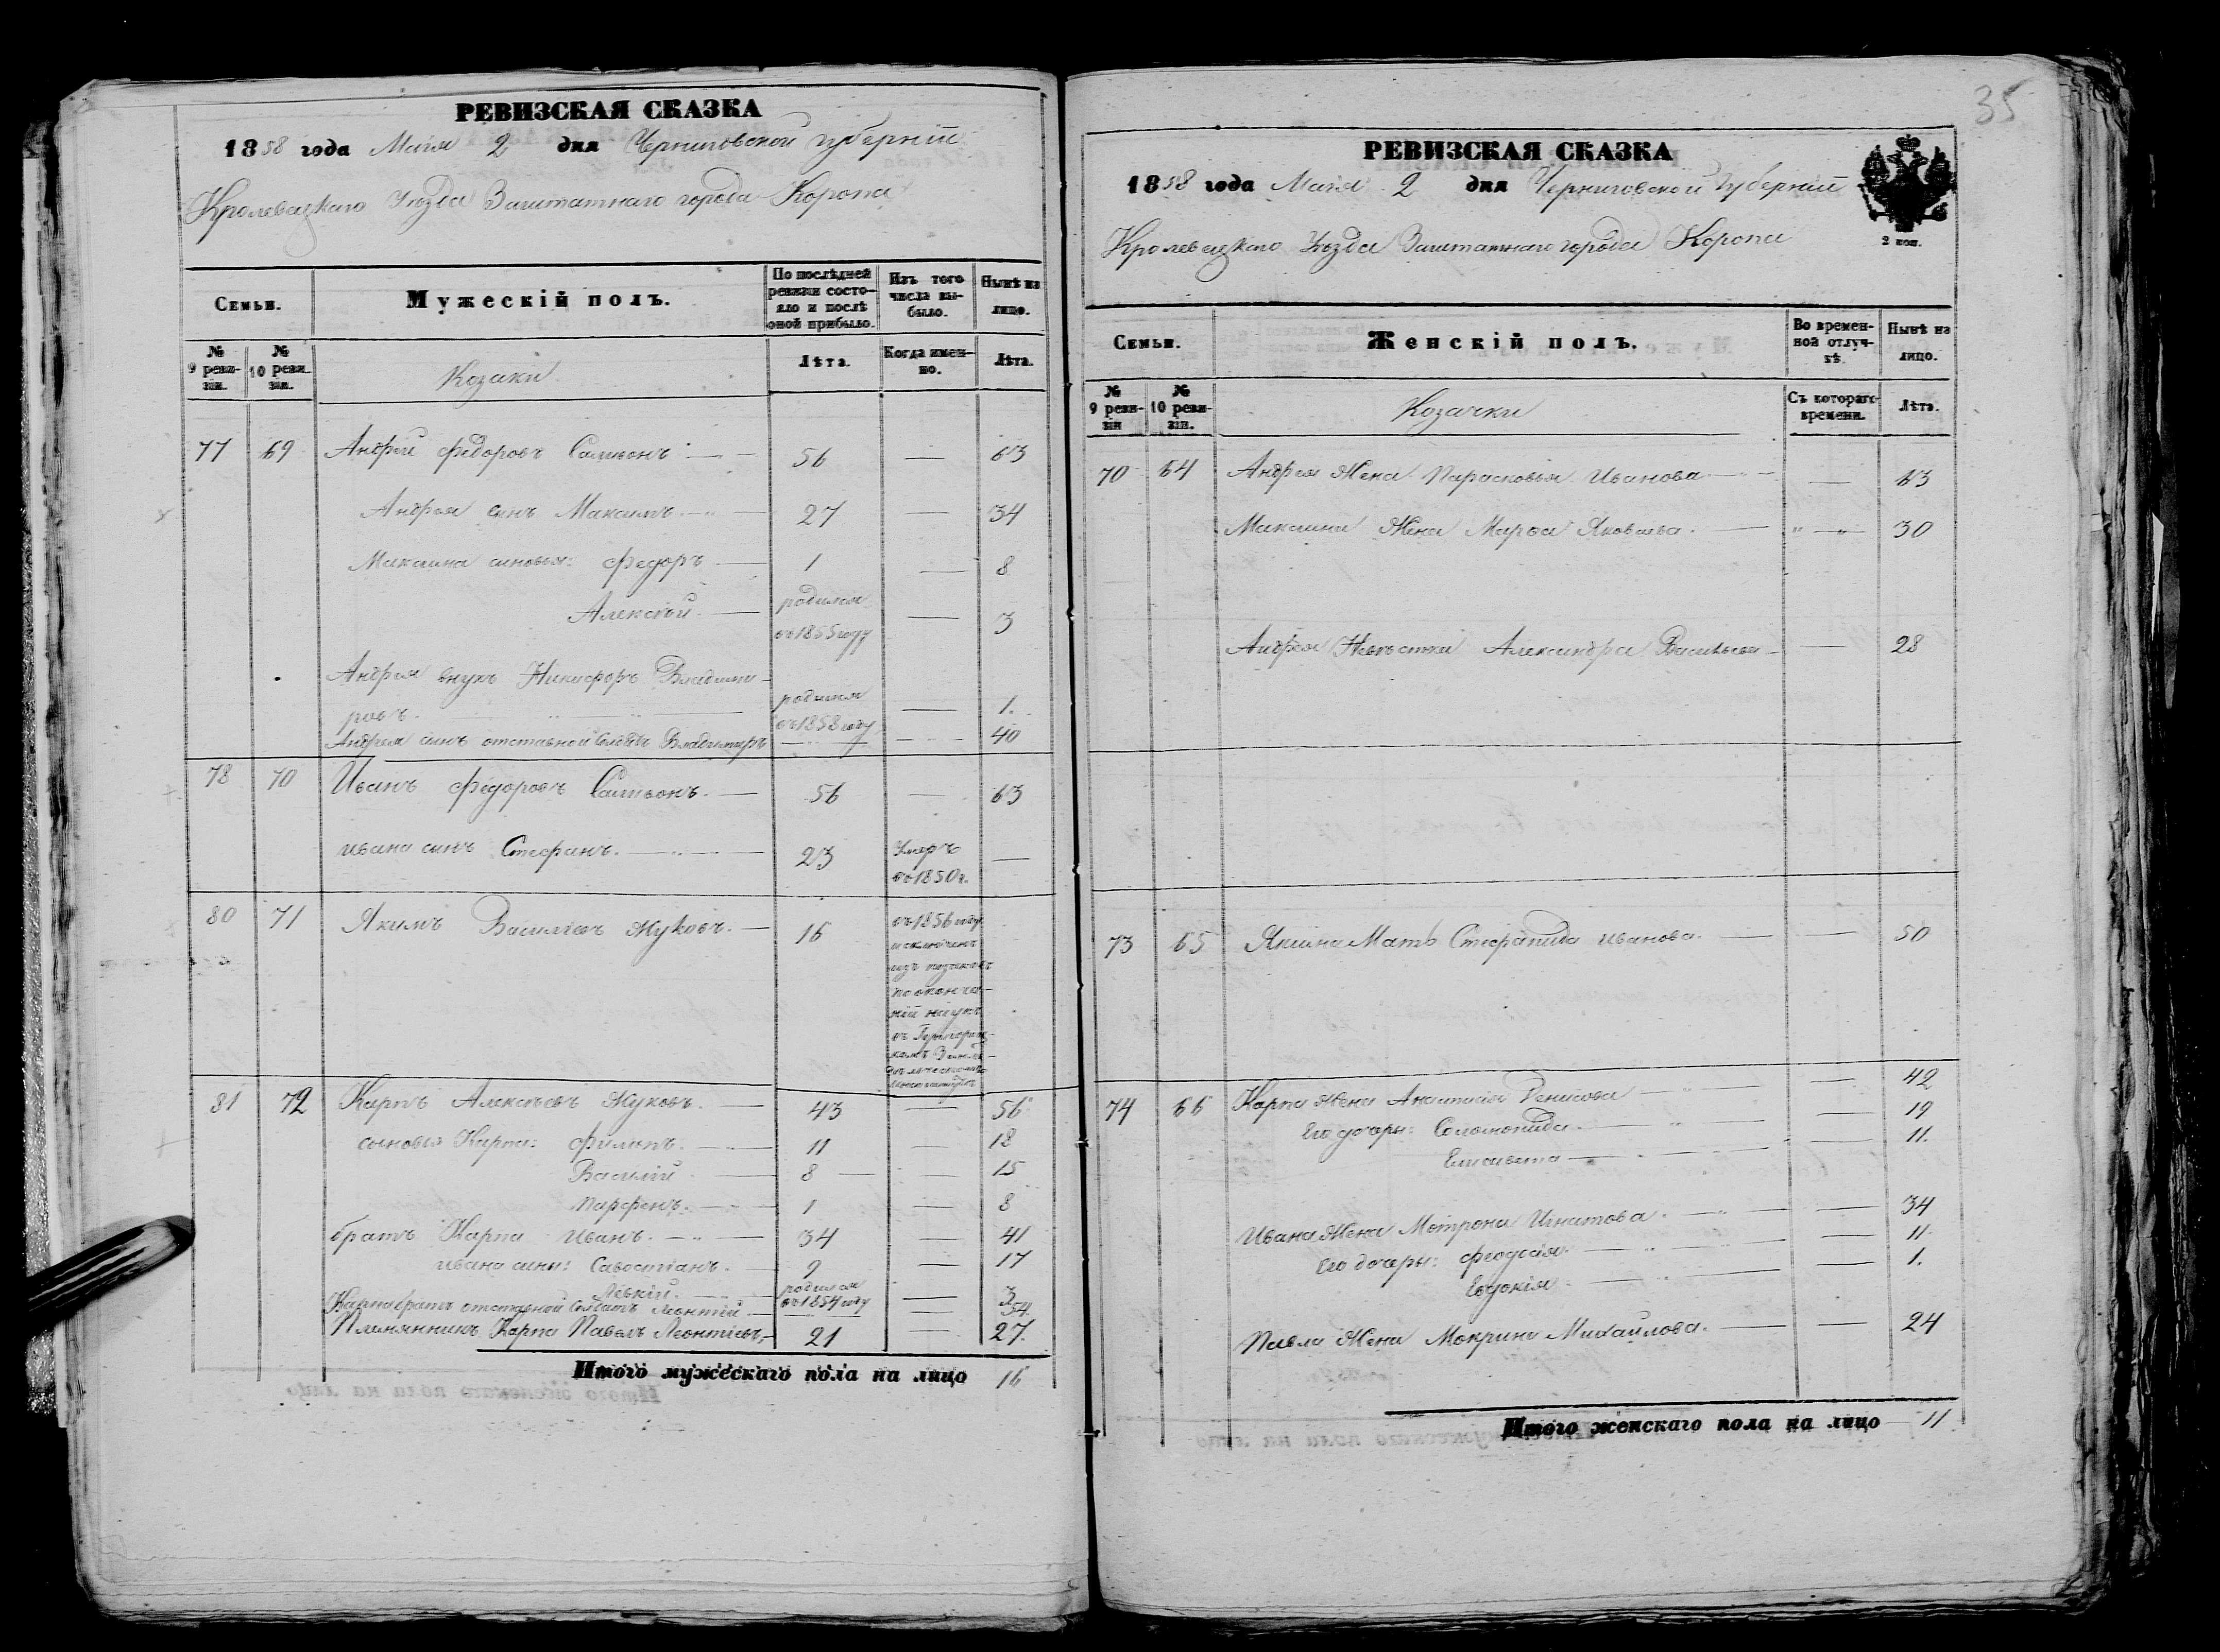 РЕВИЗСКАЯ СКАЗКА
1858 года Маія 2 дня Черниговской губерніи
Кролевецкаго Уѣзда Заштатнаго города Коропа
Семьи.
Мужескій полъ.
По послѣдней ревизіи состояло и послѣ оной прибыло.
Изъ того числа выбыло.
Нынѣ на лицо.
№ 9 ревизіи.
№ 10 ревизіи.
Козаки
Лѣта.
Когда именно.
Лѣта.
77 69 Андрей Федоровъ 56 — 63
Андрея синъ Максимъ. — 27 — 34
Максима синовья: Федоръ — 1 — 8
Алексѣй. — родился въ 1855 году — 3
Андрея внукъ Никифоръ Владими-
ровъ. родился въ 1858 году — 1.
Андрея синъ отставной Солдатъ Владимиръ — — 40
78 70 Иванъ Федоровъ — 56 — 63
Ивана синъ Стефанъ. — 23 Умеръ въ 1850 г. —
80 71 Якимъ Васильевъ Жуковъ. — 16 въ 1856 году
исключенъ
изъ козаковъ
по оконча-
ніи наукъ
въ
81 72 Карпъ Алексѣевъ Жуковъ. — 43 — 56
сыновья Карпа: Филипъ. — 11 — 18
Василій — 8 — 15
Парфенъ. — 1 — 8
братъ Карпа Иванъ. — 34 — 41
Ивана сины: Савостіанъ. — 9 — 17
Левкій. — родился въ 1854 году — 3
Карпа братъ отставной Солдатъ Леонтій — — 54.
Племянникъ Карпа Павелъ Леонтіевъ, — 21 — 27.
Итого мужескаго пола на лицо 16
35
РЕВИЗСКАЯ СКАЗКА
1858 года Маія 2 дня Черниговской Губерніи
Кролевецкаго Уѣзда Заштатнаго города Коропа
2 коп.
Семьи.
Женскій полъ.
Во временной отлучкѣ.
Нынѣ на лицо.
№ 9 ревизіи
№ 10 ревизіи.
Козачки
Съ котораго времени.
Лѣта.
70 64 Андрея Жена Парасковія Иванова — — 63
Максима Жена Марѳа Яковлева. — " — " 30
Андрея Невѣстка Александра Васильева — — 28
73 65 Якима Мать Стефанида Иванова. — — 50
74 66 Карпа Жена Анастасія Денисова — — 42
Его дочери: Соломонида. — — 19
Елисавета — — 11.
Ивана Жена Мотрона Игнатова. — — 34
Его дочери: Феодосія. — — 11.
Евдокія. — — 1.
Павла Жена Мокрина Михайлова. — — 24
Итого женскаго пола на лицо 11